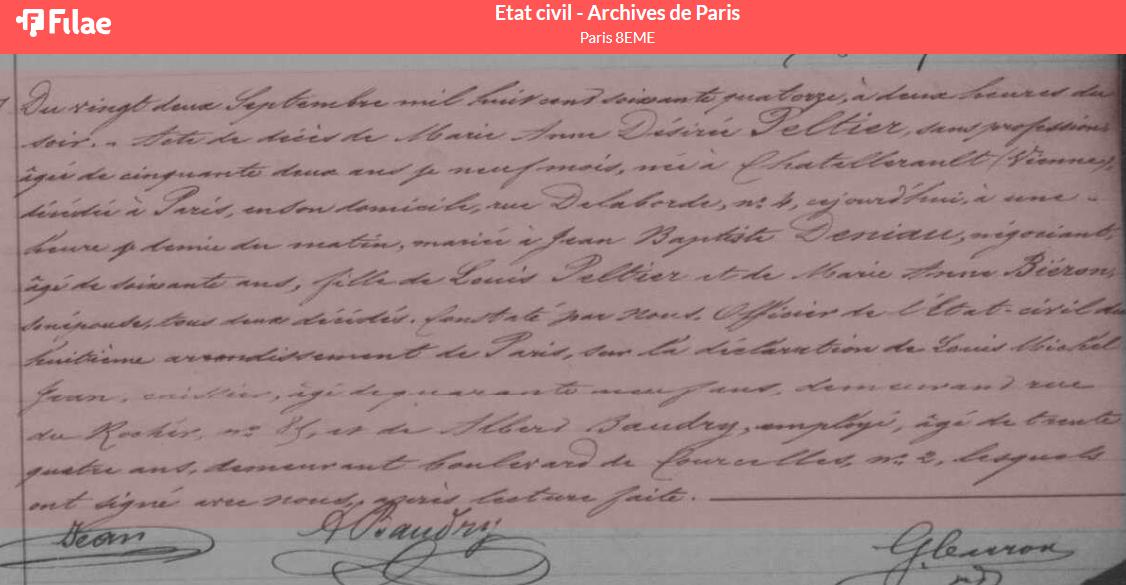 Filae
Etat civil - Archives de Paris
Paris 8EME
Du vingt deux Septembre mil huit cent soixante quatorze, à deux heures du
soir. - Acte de décès de Marie Anne Désirée Peltier, sans profession,
âgée de cinquante deux ans & neuf mois, née à Chatellerault (Vienne),
décédée à Paris, en son domicile, rue Delaborde, n° 4, cejourd'hui, à une -
heure & demie du matin, mariée à Jean Baptiste Deniau, négociant,
âgé de soixante ans, fille de Louis Peltier et de Marie Anne Biéron,
son épouse, tous deux décédés. Constaté par Nous. Officier de l'Etat-civil du
huitième arrondissement de Paris, sur la déclaration de Louis Michel
Jean, âgé de quarante neuf ans, demeurant rue
du Rocher, n° et de Albert Baudry, employé, âgé de trente
quatre ans, demeurant boulevard de Courcelles, n° 2, lesquels
ont signé avec nous, après lecture faite.
Jean A Baudry